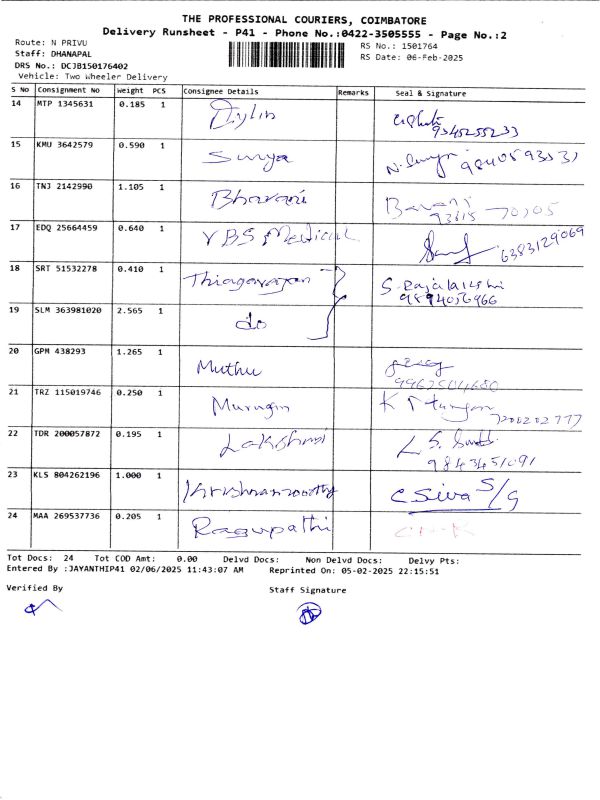 THE PROFESSIONAL COURIERS, COIMBATORE
Delivery Runsheet - P41 - Phone No.:0422-3505555 - Page No.:2
Route: N PRIVU
RS No.: 1501764
Staff: DHANAPAL
RS Date: 06-Feb-2025
DRS No.: DCJB150176402
Vehicle: Two Wheeler Delivery
S No Consignment No Weight PCS Consignee Details Remarks Seal & Signature
14 MTP 1345631 0.185 1 Dylin 9345255233
15 KMU 3642579 0.590 1 Surya
16 TNJ 2142990 1.105 1 Bhavani
17 EDQ 25664459 0.640 1 VBS Medical 6383129069
18 SRT 51532278 0.410 1 Thiagarajan S. Rajalakshmi
9894056966
19 SLM 363981020 2.565 1 do
20 GPM 438293 1.265 1 Muthu
21 TRZ 115019746 0.250 1 Murugan
22 TDR 200057872 0.195 1 Lakshmi
9843451091
23 KLS 804262196 1.000 1 Krishnamoorthy C Siva S/g
24 MAA 269537736 0.205 1 Ragupathi
Tot Docs: 24 Tot COD Amt: 0.00 Delvd Docs: Non Delvd Docs: Delvy Pts:
Entered By :JAYANTHIP41 02/06/2025 11:43:07 AM Reprinted On: 05-02-2025 22:15:51
Verified By
Staff Signature